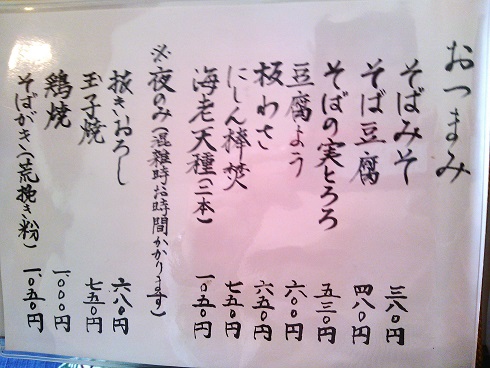 おつまみ
そばみそ 三八〇円
そば豆腐 四八〇円
そばの実とろろ 五三〇円
豆腐よう 六〇〇円
板わさ 六五〇円
にしん棒焚 七五〇円
海老天種(二本) 一〇五〇円
※夜のみ(混雑時お時間かかります)
抜きおろし 六八〇円
玉子焼 七五〇円
鶏焼 一〇〇〇円
そばがき(荒挽き粉) 一〇五〇円